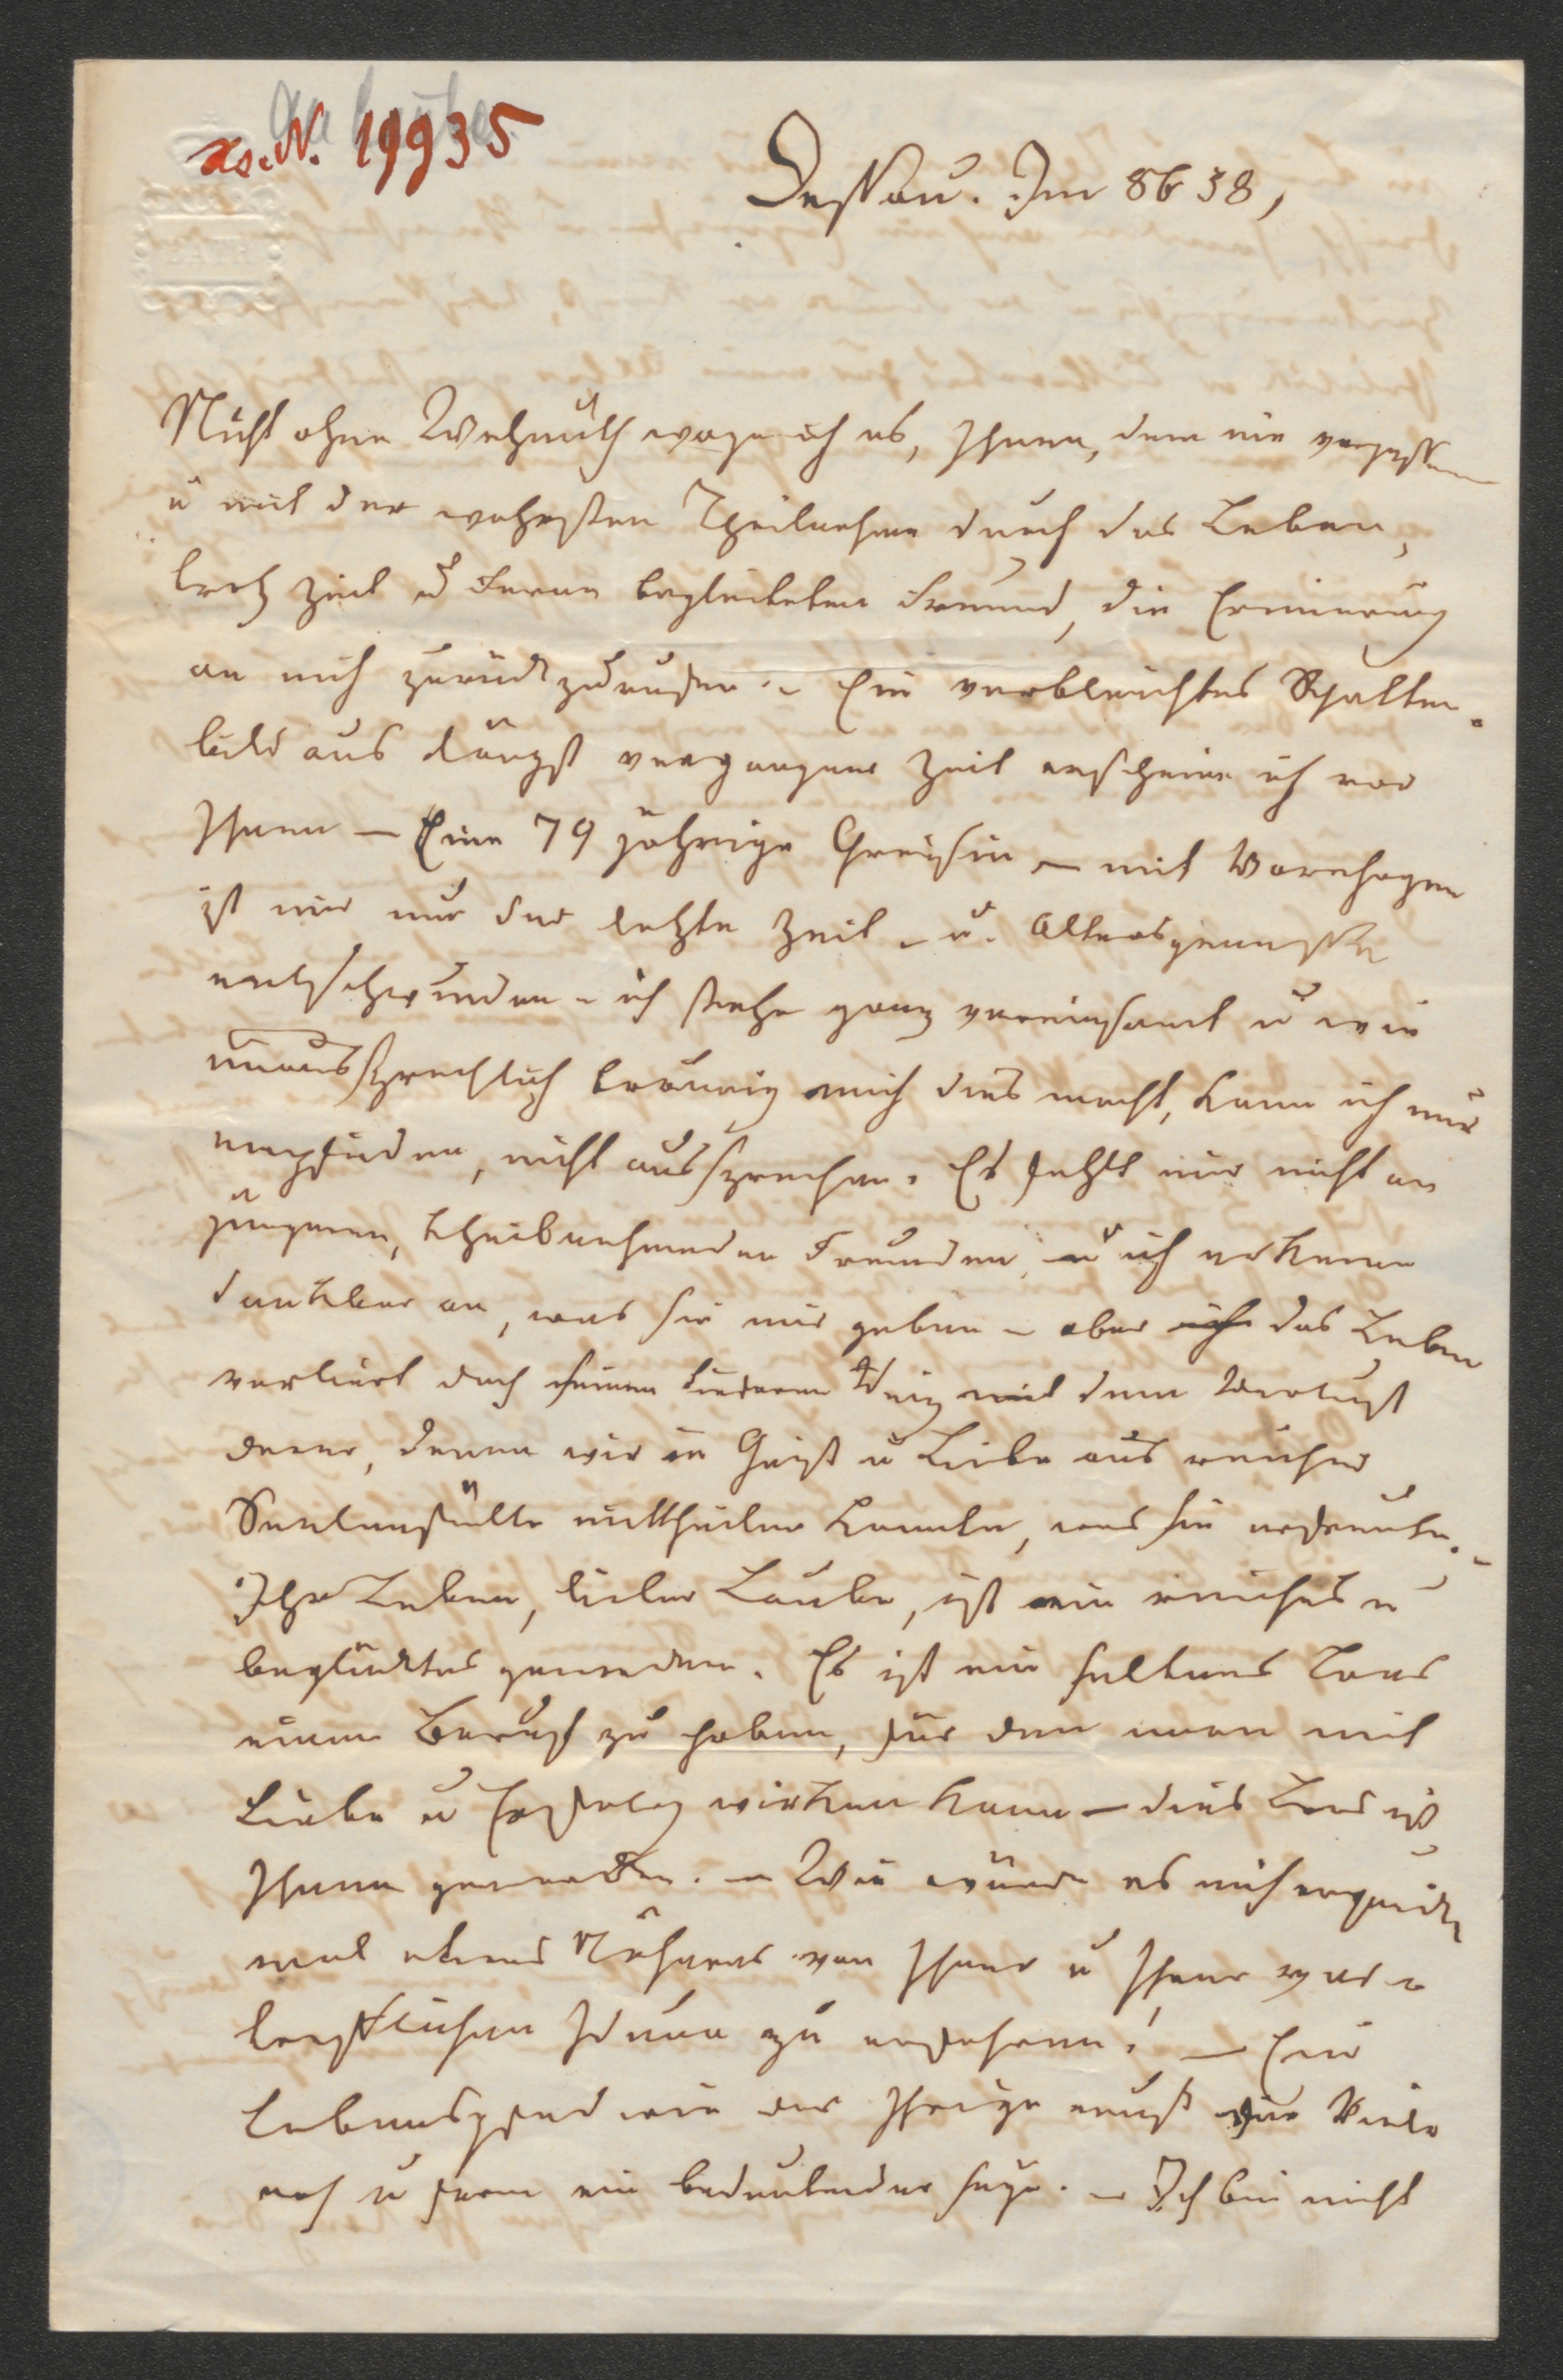 An Laube
A.N. 19935
BATH
Dessau. Im 8b 58,
Nicht ohne Wehmuth wage ich es, Ihnen, dem nie vergessenen
u mit der wahrsten Theilnahme durch das Leben,
trotz Zeit u Ferne begleiteten Freund, die Erinnerung
an mich zurückzurufen. – Ein verbleichtes Schatten-
bild aus längst vergangener Zeit erscheine ich vor
Ihnen – Eine 79 jährige Greisin – mit Varnhagen
ist mir nur der letzte Zeit- u. Altersgenosse
entschwunden – ich stehe ganz vereinsamt u wie
unaussprechlich traurig mich dies macht, kann ich nur
empfinden, nicht aussprechen. Es fehlt mir nicht an
jüngeren, theilnehmenden Freunden, u ich erkenne
dankbar an, was sie mir geben – aber das Leben
verliert doch seinen Reiz mit dem Verlust
derer, denen wir in Geist u Liebe aus reicher
Seelenfülle mittheilen konnten, was sie erfreute. –
Ihr Leben, lieber Laube, ist ein reiches u
beglücktes geworden. Es ist ein seltenes Loos
einen Beruf zu haben, für den man mit
Liebe u Erfolg wirken kann – dies Loos ist
Ihnen geworden. – Wie würde es mich erquicken
mal etwas Näheres von Ihnen u Ihrer vor-
trefflichen Iduna zu erfahren! – Ein
Lebenspfad wie der Ihrige muß für Viele
nah u fern ein bedeutender seyn. – Ich bin nicht